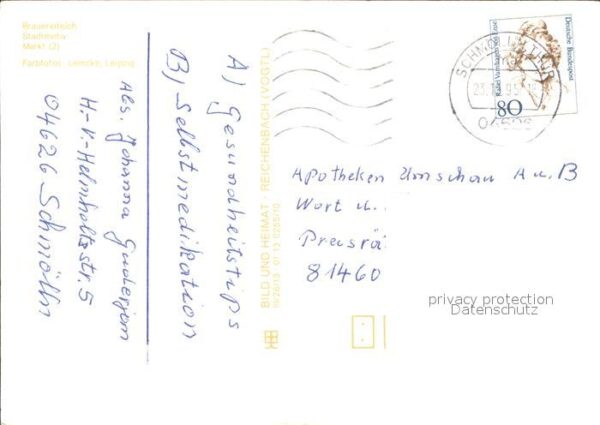 Brauereiteich
Stadtmitte
Markt (2)
Farbfotos: Lemcke, Leipzig
Abs. Johanna
H.-v.-Helmholtzstr. 5
04626 Schmölln
A) Gesundheitstips
B) Selbstmedikation
BILD UND HEIMAT REICHENBACH (VOGTL)
Deutsche Bundespost
Rahel Varnhagen von Ense
80
SCHMÖLLN, THÜR
04626
Apotheken Umschau A u. B
Wort u.
Preisrä
81460
privacy protection
Datenschutz